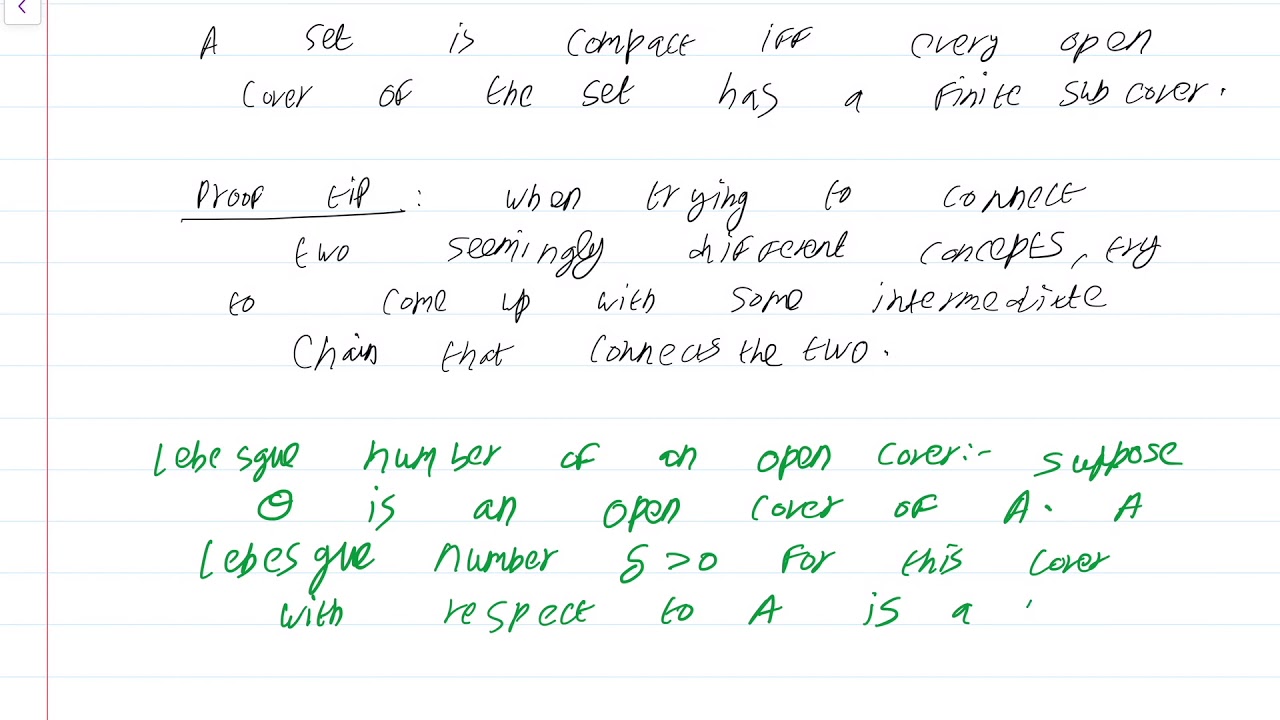 A set is compact iff every open
cover of the set has a finite subcover.
Proof tip: when trying to connect
two seemingly different concepts, try
to come up with some intermediate
chain that connects the two.
Lebesgue number of an open cover:- suppose
Θ is an open cover of A. A
Lebesgue number δ>0 for this cover
with respect to A is a